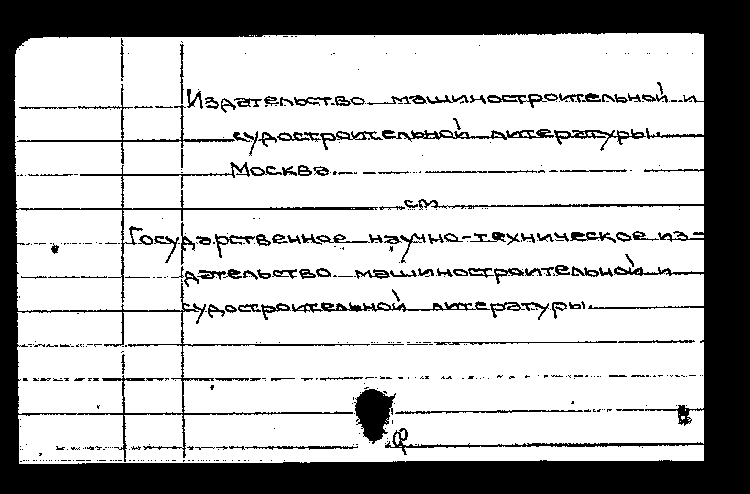 Издательство машиностроительной и
судостроительной литературы.
Москва.
см
Государственное научно-техническое из-
дательство машиностроительной и
судостроительной литературы.